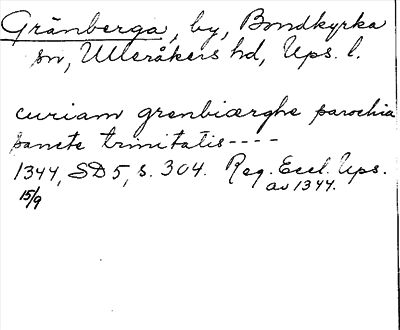 Gränberga, by, Bondkyrka
sn, Ulleråkers hd, Ups. l.
curiam grenbiærghe parochia
sancte trinitatis----
1344, SD 5, s. 304. Reg. Eccl. Ups.
15/9 av 1344.